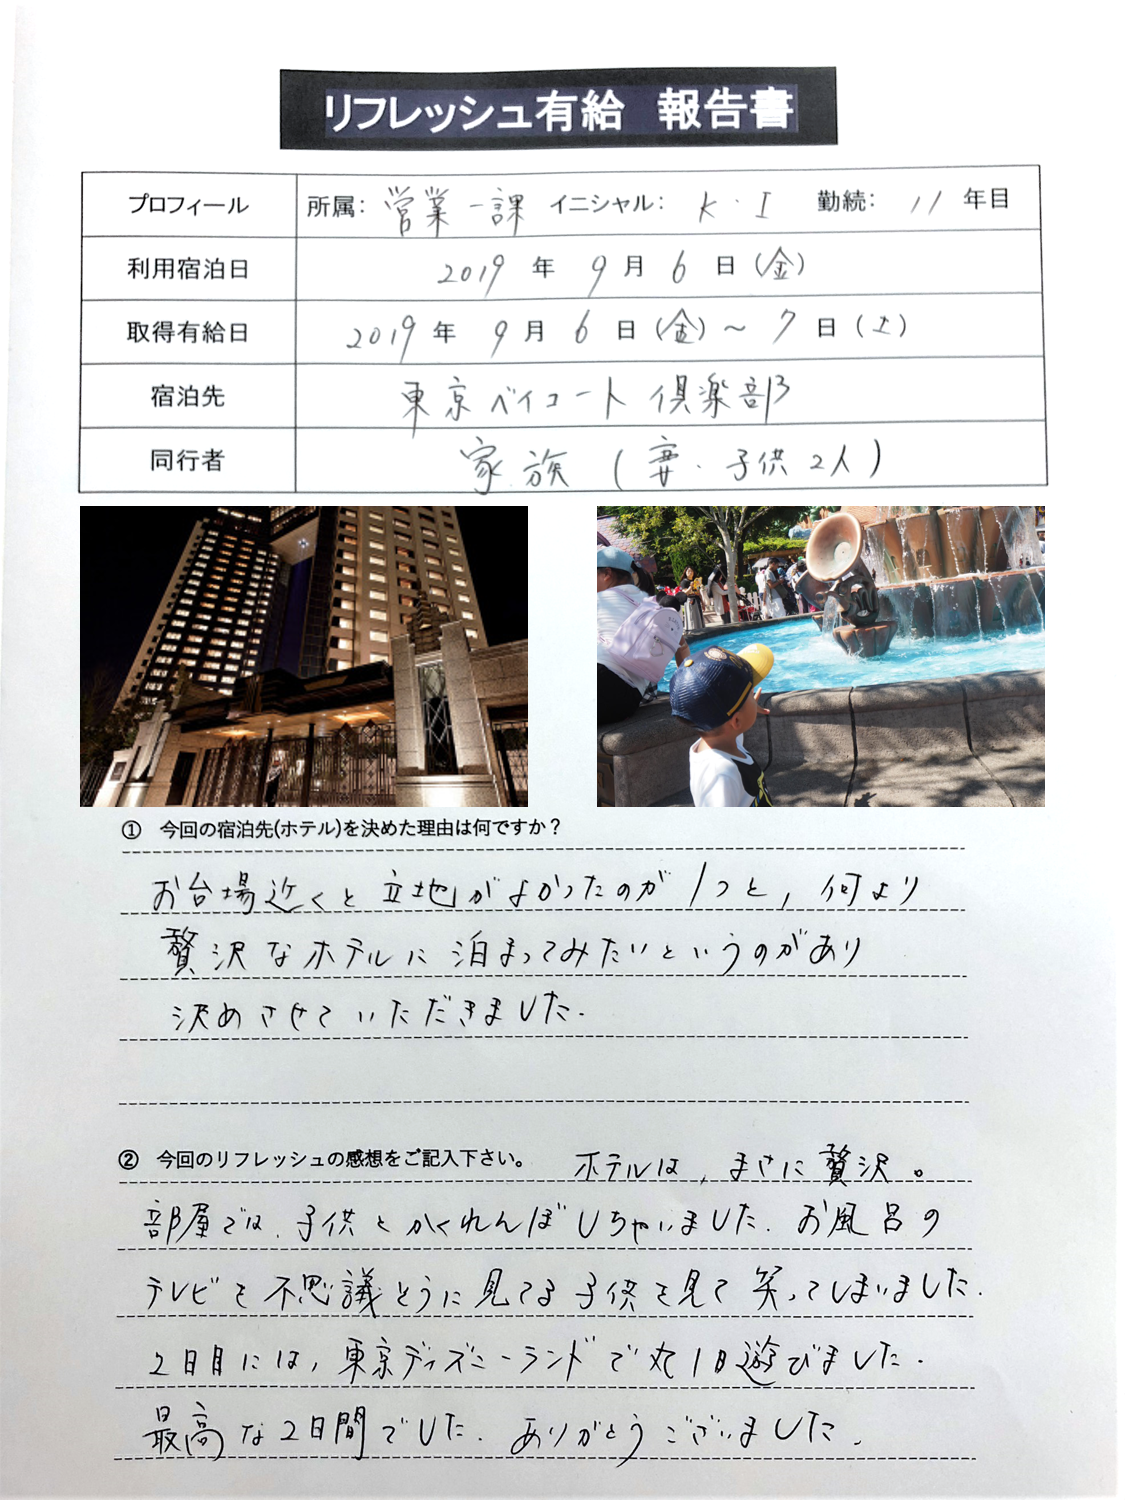 リフレッシュ有給　報告書
プロフィール 所属： 営業一課 イニシャル： K・I 勤続： 11 年目
利用宿泊日 2019 年 9 月 6 日（金）
取得有給日 2019 年 9 月 6 日（金）～ 7 日（土）
宿泊先 東京ベイコート倶楽部
同行者 家族（妻・子供2人）
① 今回の宿泊先(ホテル)を決めた理由は何ですか？
お台場近くと立地がよかったのが1つと、何より
贅沢なホテルに泊まってみたいというのがあり
決めさせていただきました.
② 今回のリフレッシュの感想をご記入下さい。 ホテルは、まさに贅沢。
部屋では、子供とかくれんぼしちゃいました. お風呂の
テレビを不思議そうに見てる子供を見て笑ってしまいました.
2日目には、東京ディズニーランドで丸1日遊びました.
最高な2日間でした. ありがとうございました.